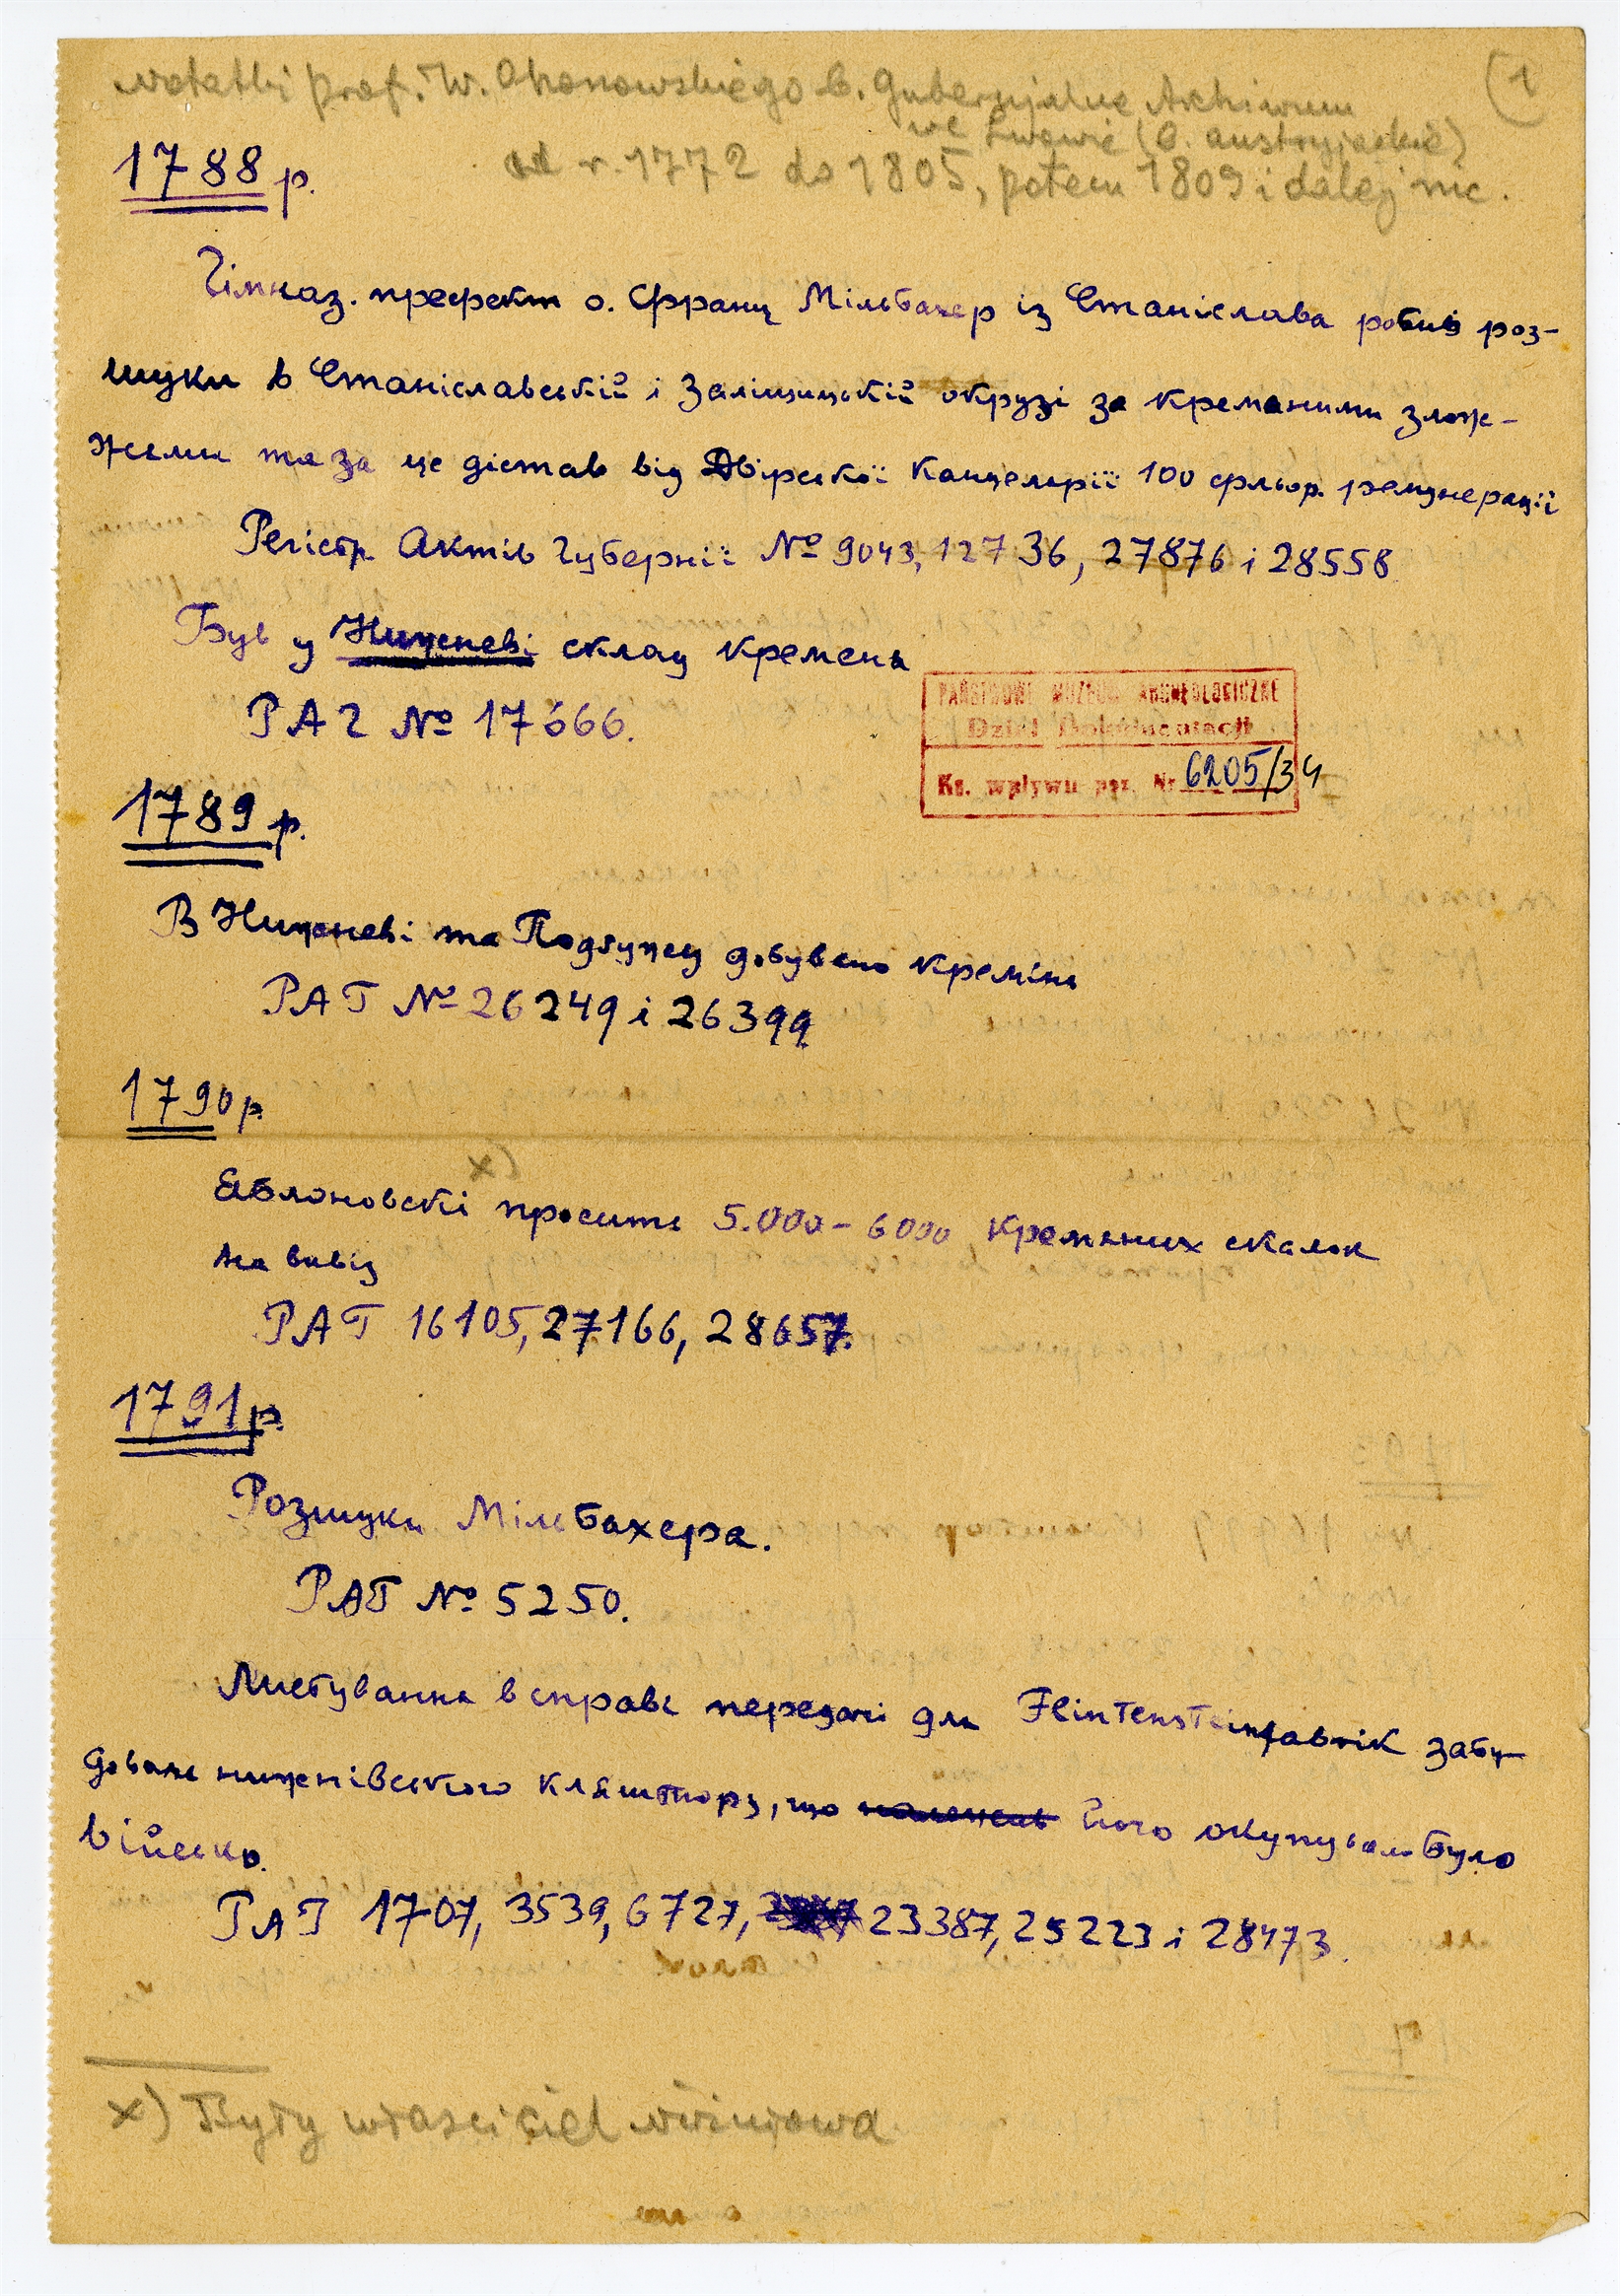 Notatki prof. W. Ohonowskiego b. Gubernjalne Archiwum
we Lwowie (b. austryjackie)
od r. 1772 do 1805, potem 1809 i dalej nic.
(1
1788 р.
Ґімназ. префект о. Франц Мільбахер із Станіслава робив роз-
шуки в Станіславській і Заліщицькій окрузі за кремяними злож-
жами та за це дістав від Двірської Канцелярії 100 фльор. ремунерації
Регістр. Актів Ґубернії № 9043, 12736, 27876 і 28558
Був у Нижневі склад кременя
РАҐ № 17666.
PAŃSTWOWE MUZEUM ARCHEOLOGICZNE
Dział Dokumentacji
Ks. wpływu poz. Nr 6205/34
1789 р.
В Нижневі та добувано кремінь
РАГ № 26249 і 26399
1790 р.
x)
Яблоновскі просить 5.000 - 6000 кремяних скалок
на вивіз
РАГ 16105, 27166, 28657.
1791 р.
Розшуки Мільбахера.
РАГ № 5250.
Листування в справі передачі для Flintensteinfabrik забу-
довань нижнівського кляштору, що його окупувало було
військо.
РАГ 1707, 3539, 6727, 23387, 25223 і 28473.
x) Były właściciel Niżniowa